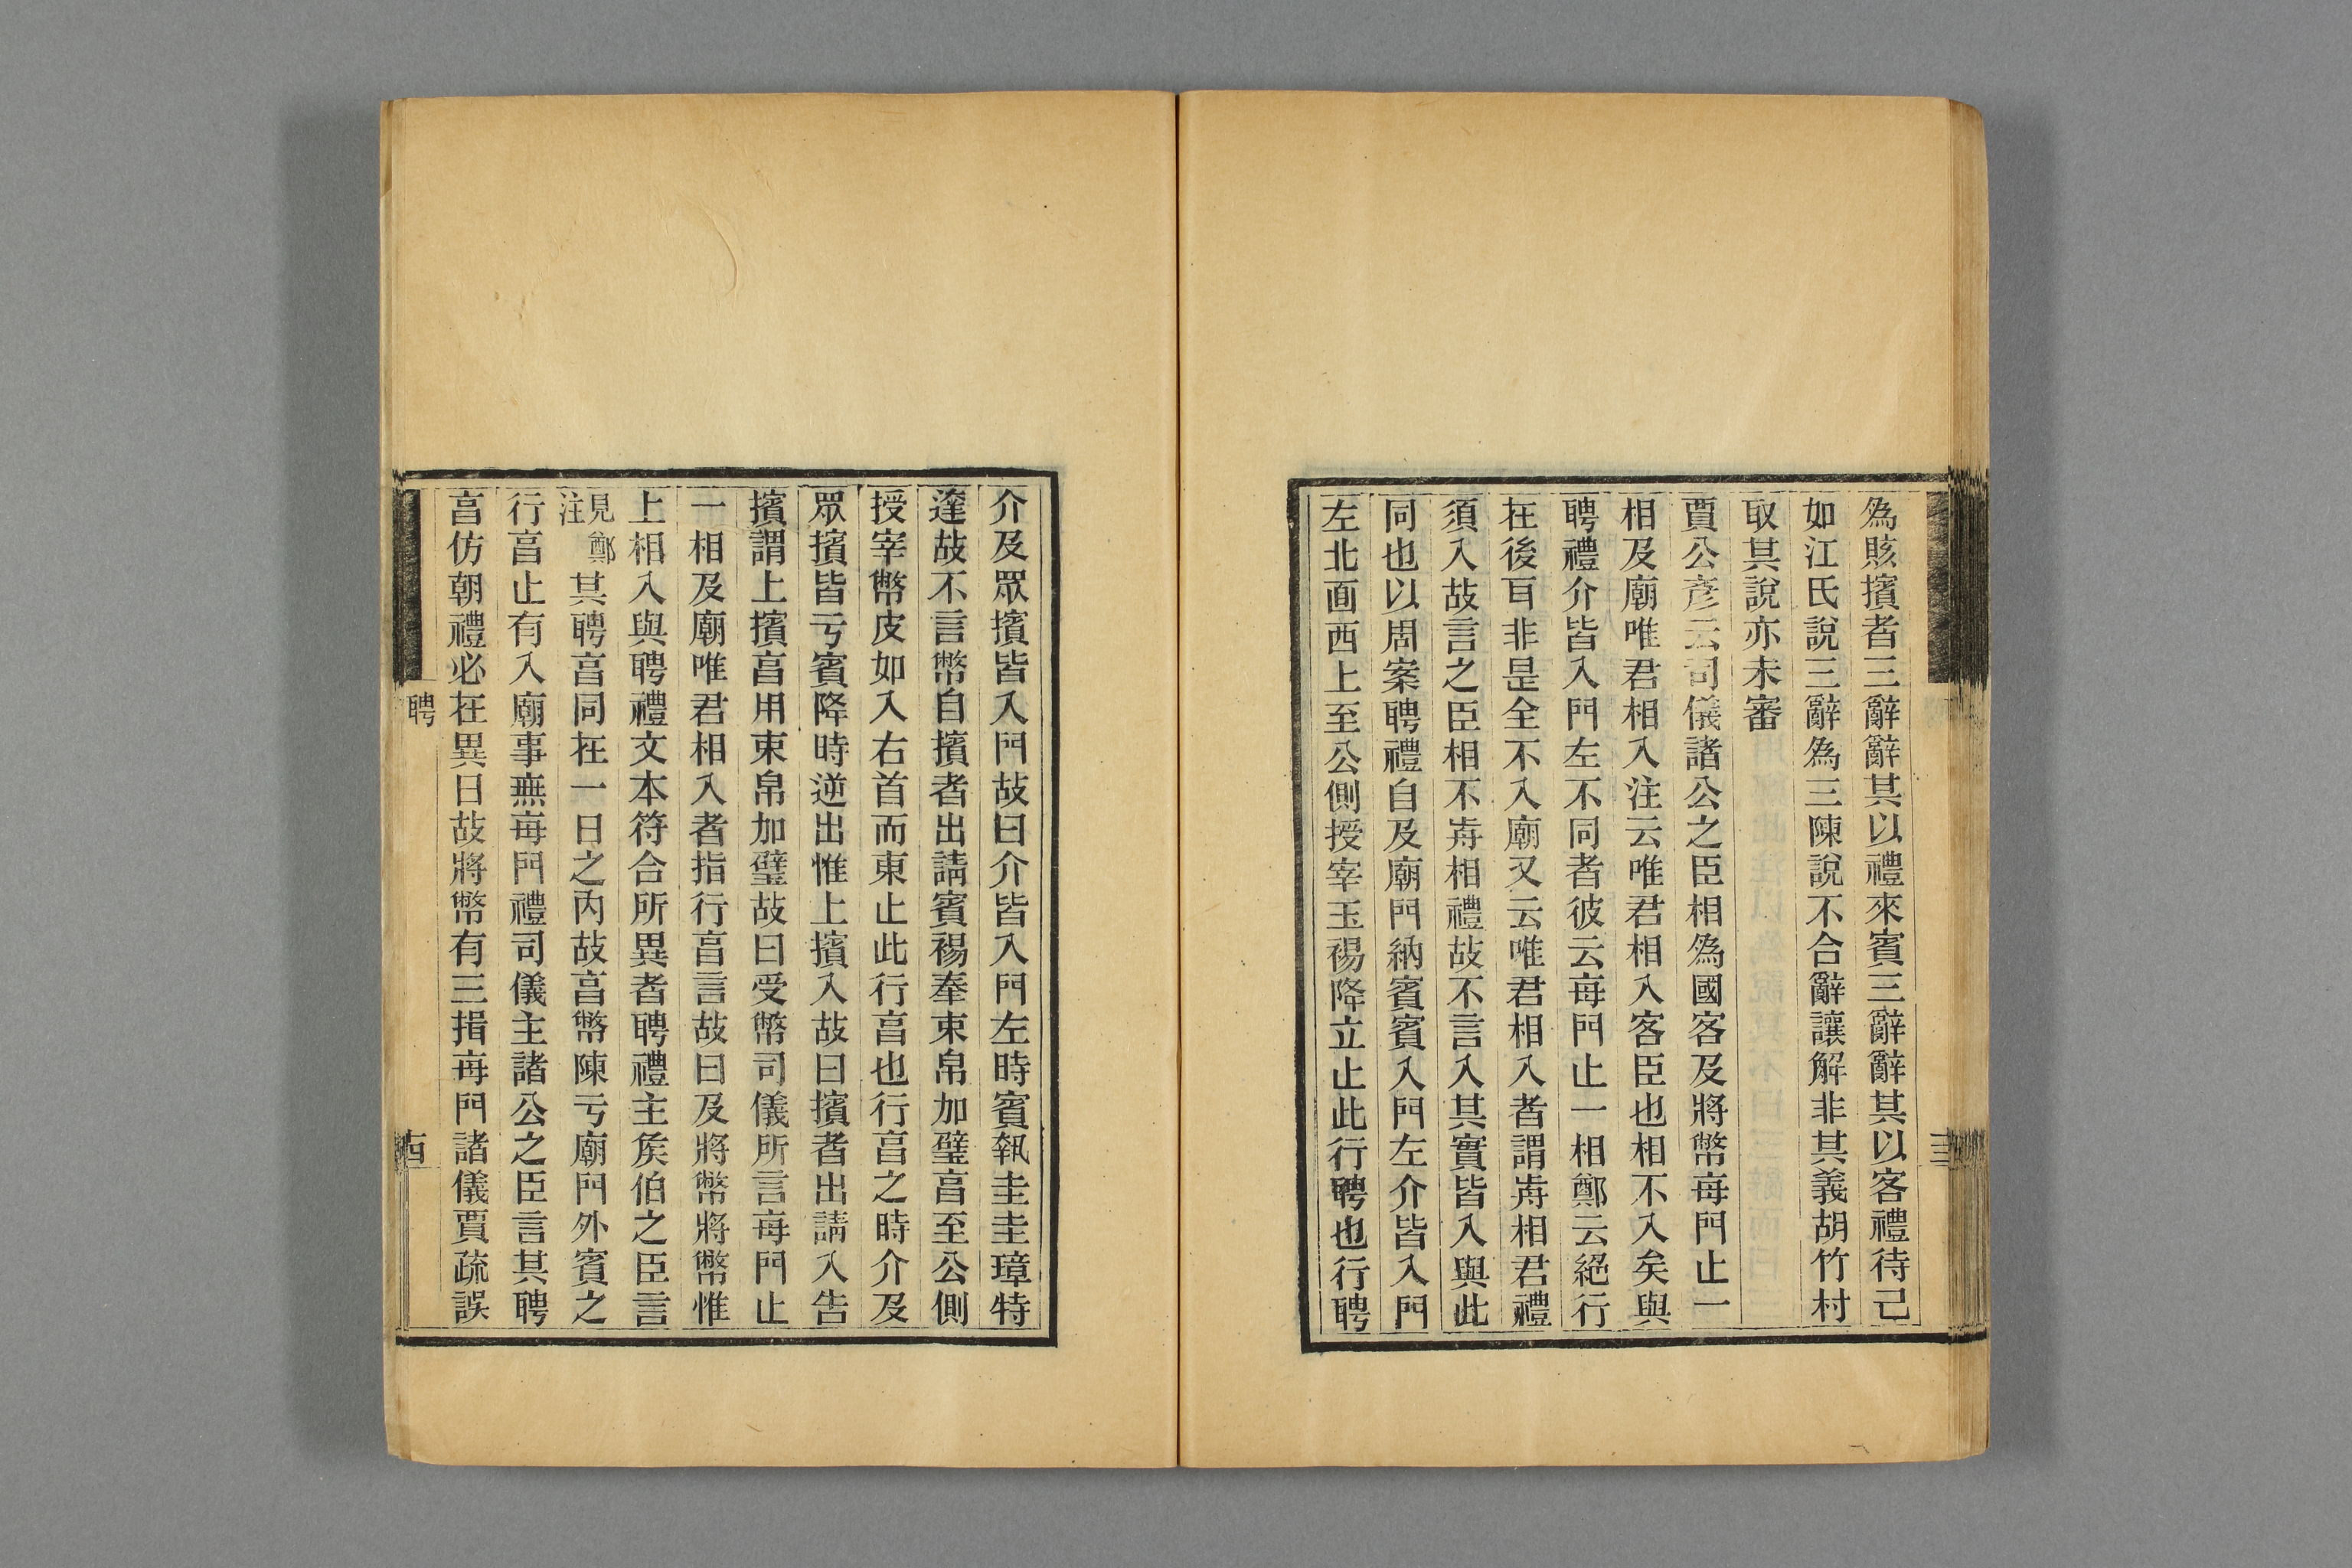 為賅擯者三辭辭其以禮來賓三辭辭其以客禮待己
如江氏說三辭為三陳說不合辭讓解非其義胡竹村
取其說亦未審
賈公彥云司儀諸公之臣相為國客及將幣每門止一
相及廟唯君相入注云唯君相入客臣也相不入矣與
聘禮介皆入門左不同者彼云每門止一相鄭云絕行
在後耳非是全不入廟又云唯君相入者謂歬相君禮
須入故言之臣相不歬相禮故不言入其實皆入與此
同也以周案聘禮自及廟門納賓賓入門左介皆入門
左北面西上至公側授宰玉裼降立止此行聘也行聘
介及眾擯皆入門故曰介皆入門左時賓執圭圭璋特
達故不言幣自擯者出請賓裼奉束帛加璧亯至公側
授宰幣皮如入右首而東止此行亯也行亯之時介及
眾擯皆亏賓降時逆出惟上擯入故曰擯者出請入告
擯謂上擯亯用束帛加璧故曰受幣司儀所言每門止
一相及廟唯君相入者指行亯言故曰及將幣將幣惟
上相入與聘禮文本符合所異者聘禮主矦伯之臣言
見鄭注其聘亯同在一日之內故亯幣陳亏廟門外賓之
行亯止有入廟事無每門禮司儀主諸公之臣言其聘
亯仿朝禮必在異日故將幣有三揖每門諸儀賈疏誤
聘